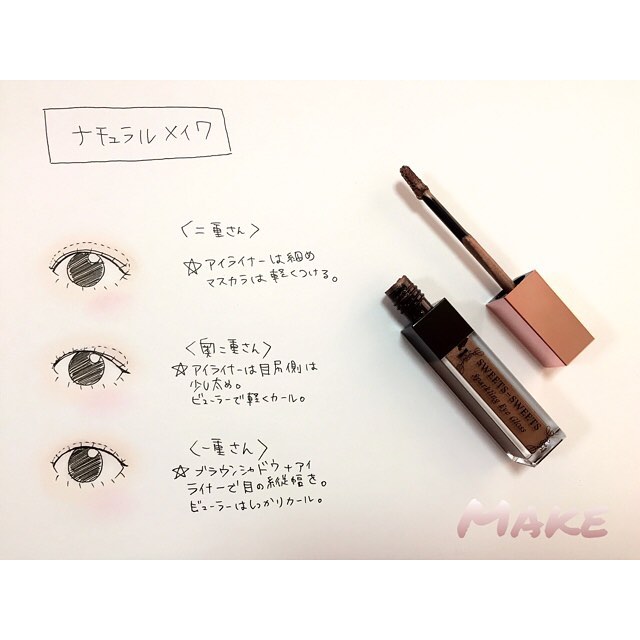 ナチュラルメイク
〈二重さん〉
☆アイライナーは細め
マスカラは軽くつける。
〈奥二重さん〉
☆アイライナーは目尻側は
少し太め。
ビューラーで軽くカール。
〈一重さん〉
☆ブラウンシャドウ+アイ
ライナーで目の縦幅を。
ビューラーはしっかりカール。
SWEETS*SWEETS
Sparkling Eye Gloss
MAKE